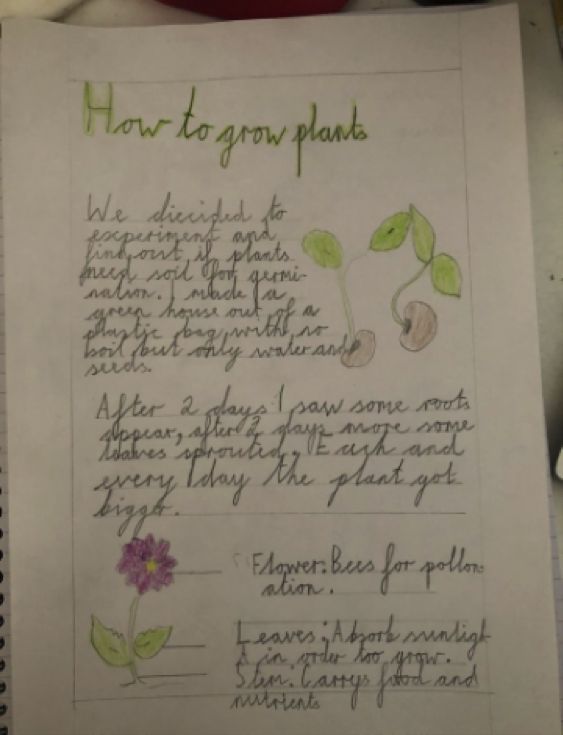 How to grow plants
We diecided to
experiment and
find out if plants
need soil for germi-
nation. I made a
green house out of a
plastic bag with no
soil but only water and
seeds.
After 2 days I saw some roots
appear, after 2 days more some
leaves sprouted. Each and
every day the plant got
bigger.
Flower: Bees for pollon-
ation.
Leaves: Absorb sunligh
t in order too grow.
Stem: Carrys food and
nutrients